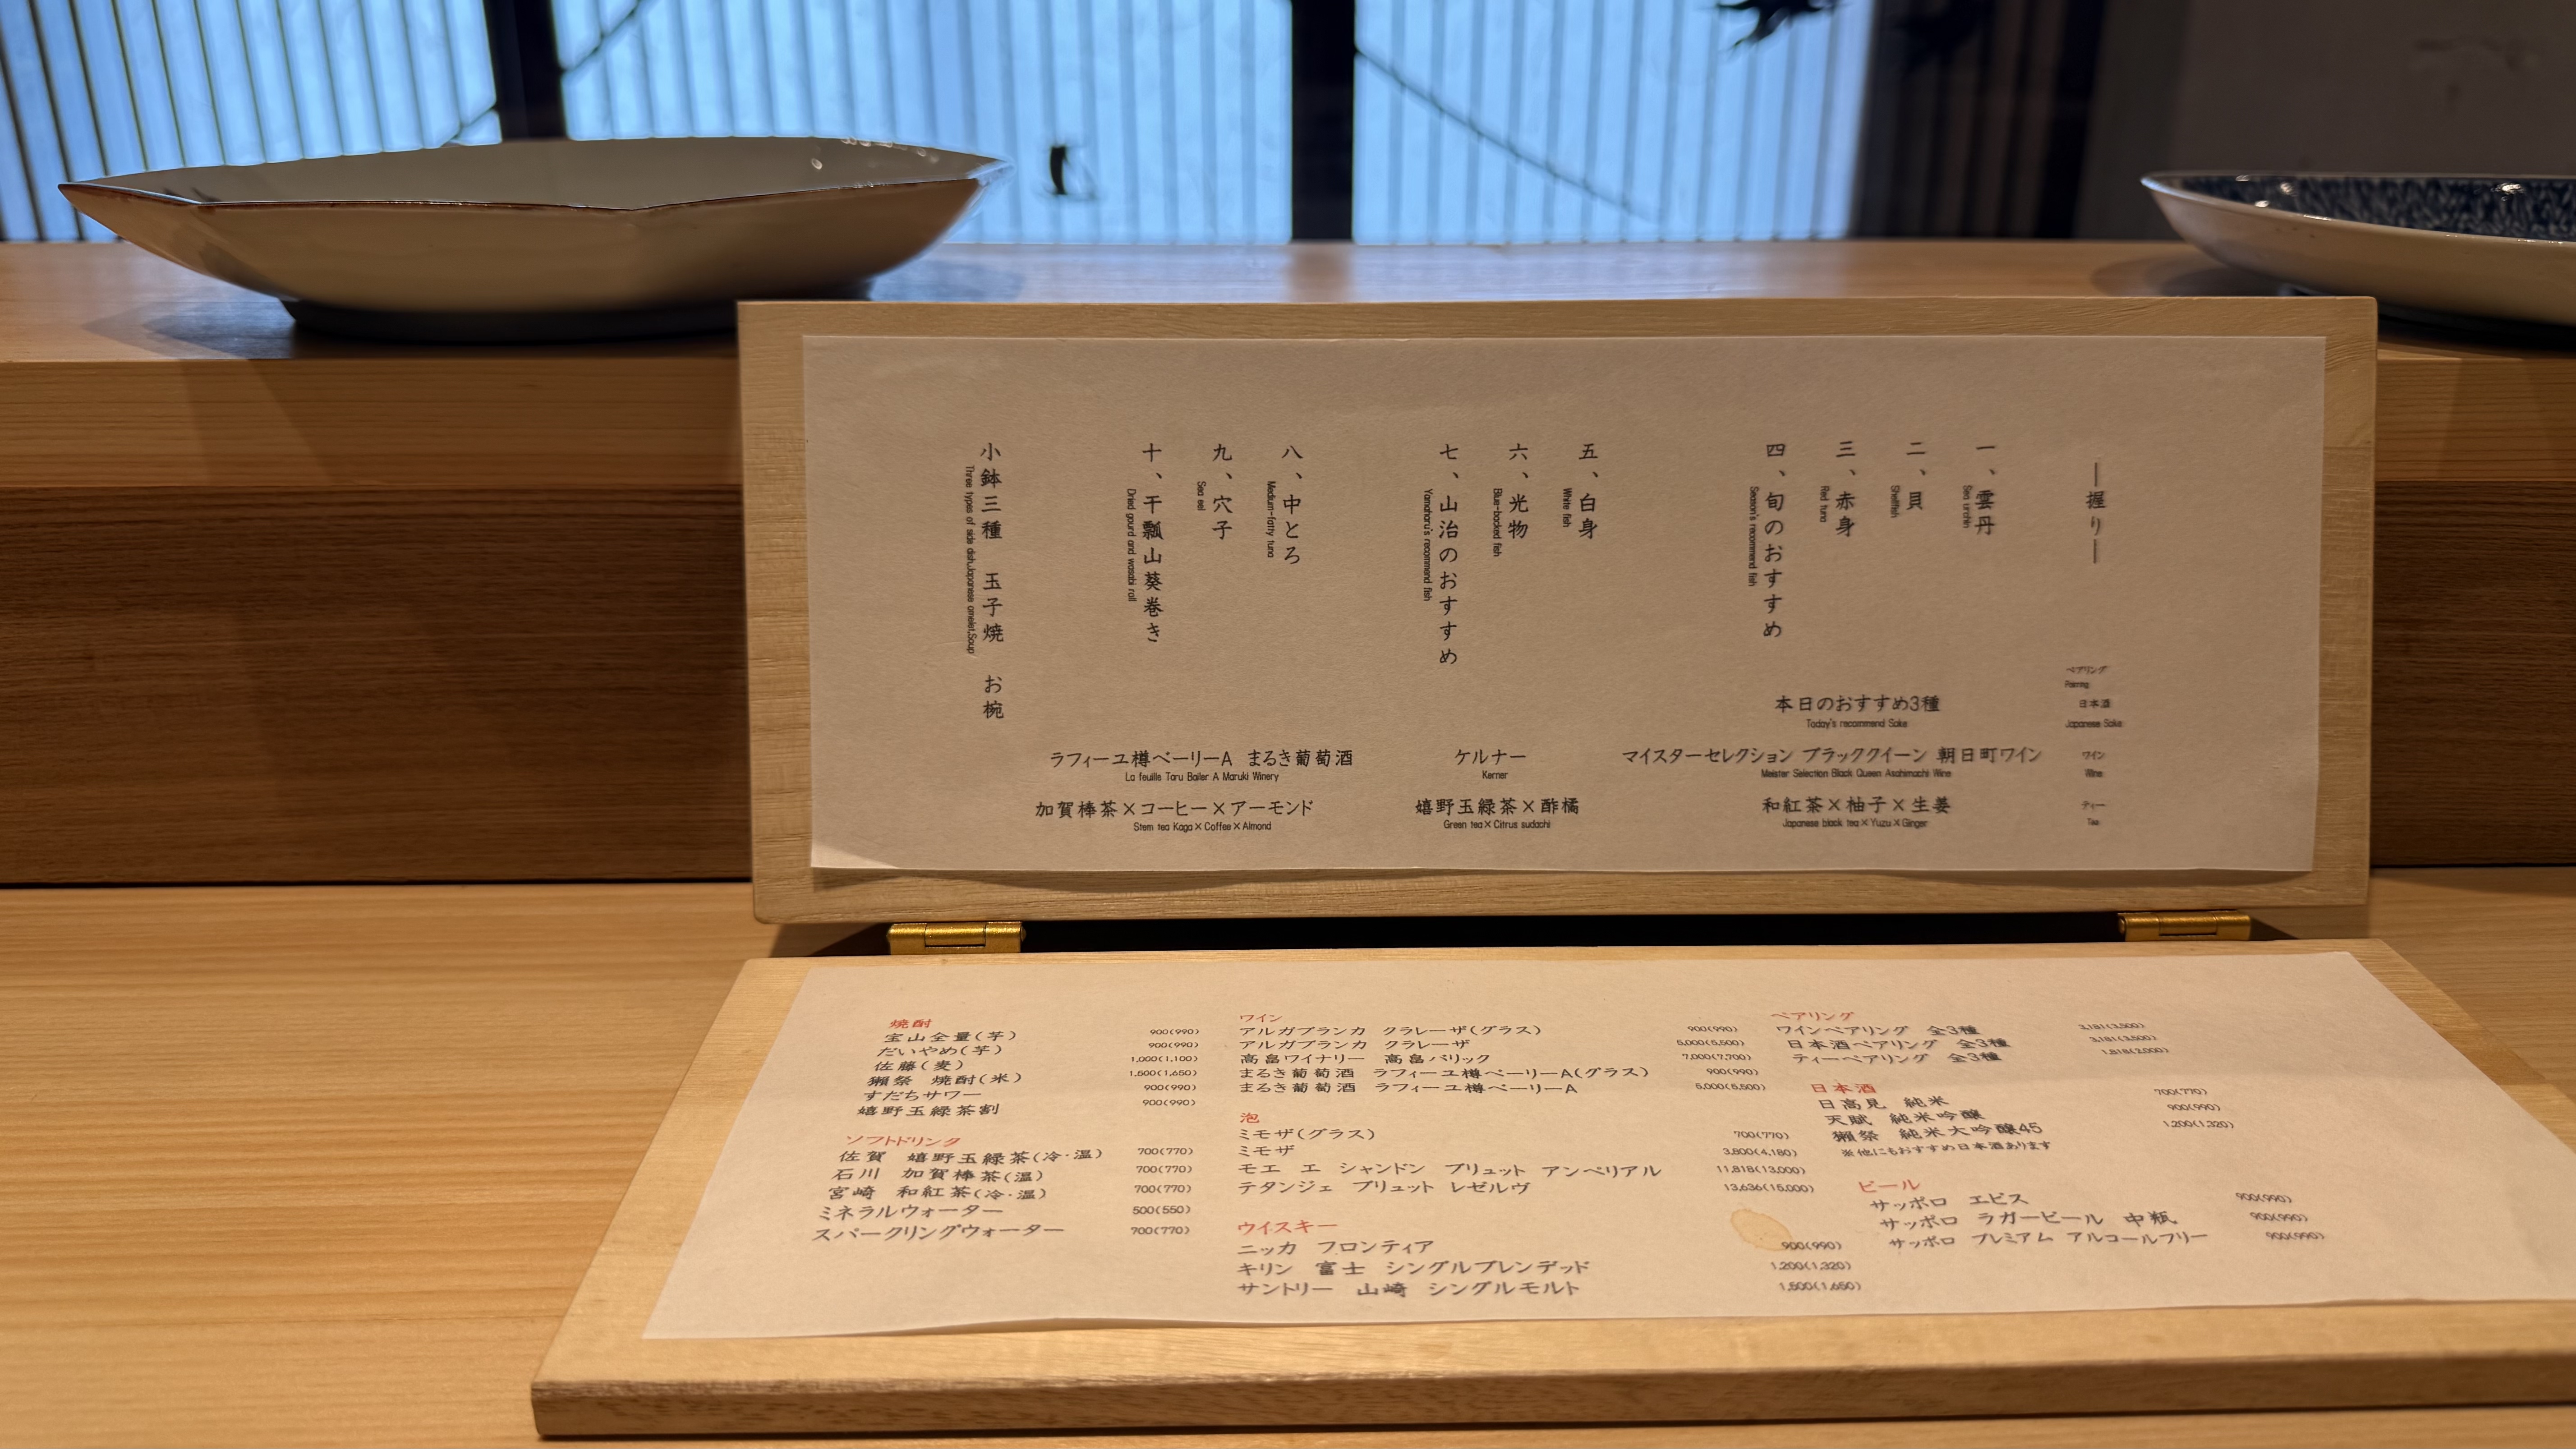 ―握り―
一、雲丹
Sea urchin
二、貝
Shellfish
三、赤身
Red tuna
四、旬のおすすめ
Season's recommend fish
五、白身
White fish
六、光物
Blue-backed fish
七、山治のおすすめ
Yamaharu's recommend fish
八、中とろ
Medium-fatty tuna
九、穴子
Sea eel
十、干瓢山葵巻き
Dried gourd and wasabi roll
小鉢三種 玉子焼 お椀
Three types of side dish,Japanese omelet,Soup
ペアリング
Pairing
日本酒
Japanese Sake
本日のおすすめ3種
Today's recommend Sake
ワイン
Wine
マイスターセレクション ブラッククイーン 朝日町ワイン
Meister Selection Black Queen Asahimachi Wine
ケルナー
Kerner
ラフィーユ樽ベーリーA まるき葡萄酒
La feuille Taru Bailer A Maruki Winery
ティー
Tea
和紅茶×柚子×生姜
Japanese black tea×Yuzu×Ginger
嬉野玉緑茶×酢橘
Green tea×Citrus sudachi
加賀棒茶×コーヒー×アーモンド
Stem tea Kaga×Coffee×Almond
焼酎
宝山全量(芋) 900(990)
だいやめ(芋) 900(990)
佐藤(麦) 1,000(1,100)
獺祭 焼酎(米) 1,500(1,650)
すだちサワー 900(990)
嬉野玉緑茶割 900(990)
ソフトドリンク
佐賀 嬉野玉緑茶(冷・温) 700(770)
石川 加賀棒茶(温) 700(770)
宮崎 和紅茶(冷・温) 700(770)
ミネラルウォーター 500(550)
スパークリングウォーター 700(770)
ワイン
アルガブランカ クラレーザ(グラス) 900(990)
アルガブランカ クラレーザ 5,000(5,500)
高畠ワイナリー 高畠バリック 7,000(7,700)
まるき葡萄酒 ラフィーユ樽ベーリーA(グラス) 900(990)
まるき葡萄酒 ラフィーユ樽ベーリーA 5,000(5,500)
泡
ミモザ(グラス) 700(770)
ミモザ 3,800(4,180)
モエ エ シャンドン ブリュット アンペリアル 11,818(13,000)
テタンジェ ブリュット レゼルヴ 13,636(15,000)
ウイスキー
ニッカ フロンティア 900(990)
キリン 富士 シングルブレンデッド 1,200(1,320)
サントリー 山崎 シングルモルト 1,500(1,650)
ペアリング
ワインペアリング 全3種 3,181(3,500)
日本酒ペアリング 全3種 3,181(3,500)
ティーペアリング 全3種 1,818(2,000)
日本酒
日高見 純米 700(770)
天賦 純米吟醸 900(990)
獺祭 純米大吟醸45 1,200(1,320)
※他にもおすすめ日本酒あります
ビール
サッポロ エビス 900(990)
サッポロ ラガービール 中瓶 900(990)
サッポロ プレミアム アルコールフリー 900(990)